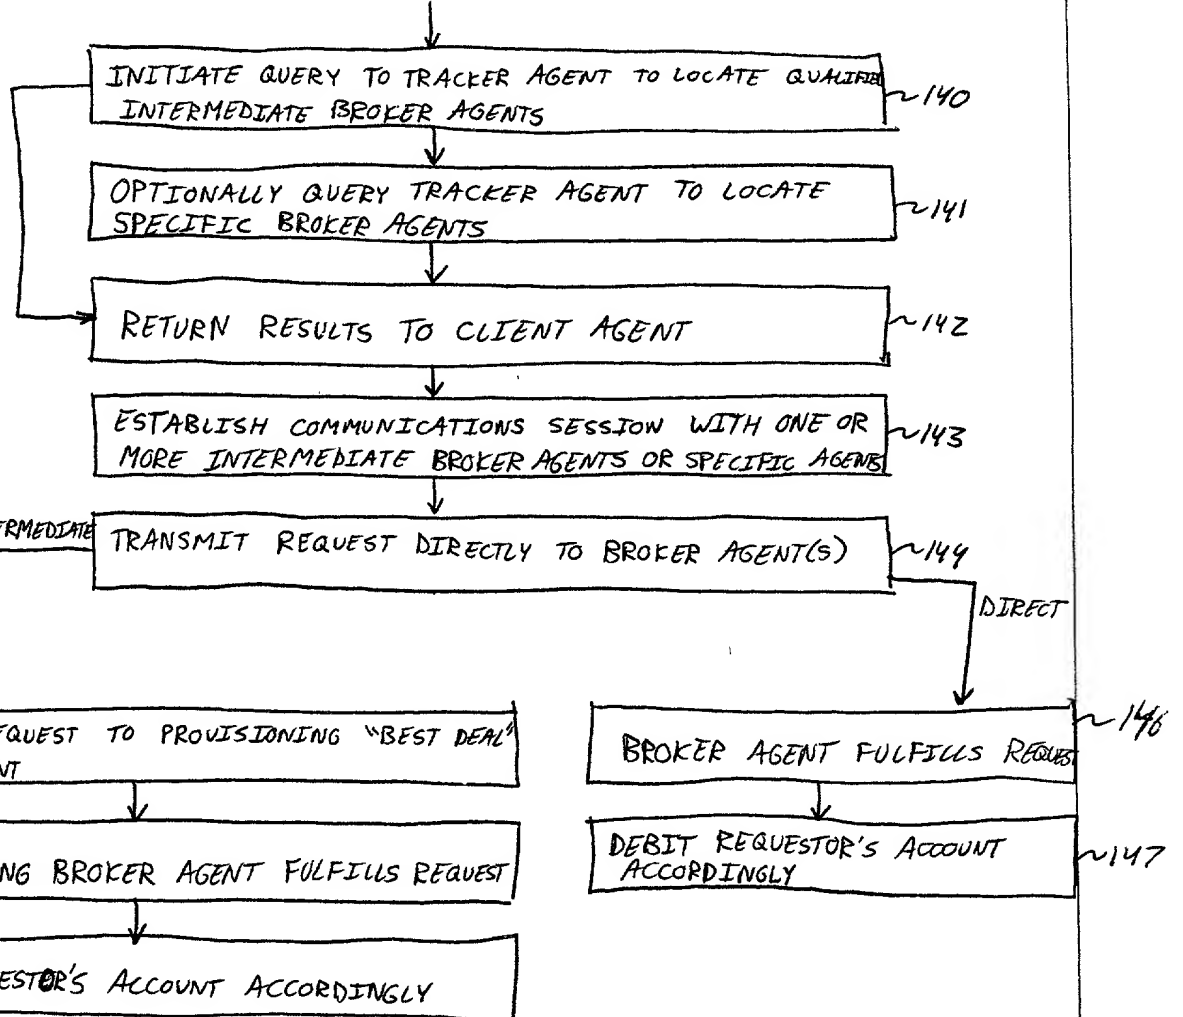 INITIATE QUERY TO TRACKER AGENT TO LOCATE QUALIFIED
INTERMEDIATE BROKER AGENTS
140
OPTIONALLY QUERY TRACKER AGENT TO LOCATE
SPECIFIC BROKER AGENTS
141
RETURN RESULTS TO CLIENT AGENT
142
ESTABLISH COMMUNICATIONS SESSION WITH ONE OR
MORE INTERMEDIATE BROKER AGENTS OR SPECIFIC AGENTS
143
ERMEDIATE
TRANSMIT REQUEST DIRECTLY TO BROKER AGENT(S)
144
DIRECT
EQUEST TO PROVISIONING "BEST DEAL"
NT
BROKER AGENT FULFILLS REQUEST
146
NG BROKER AGENT FULFILLS REQUEST
DEBIT REQUESTOR'S ACCOUNT
ACCORDINGLY
147
ESTOR'S ACCOUNT ACCORDINGLY